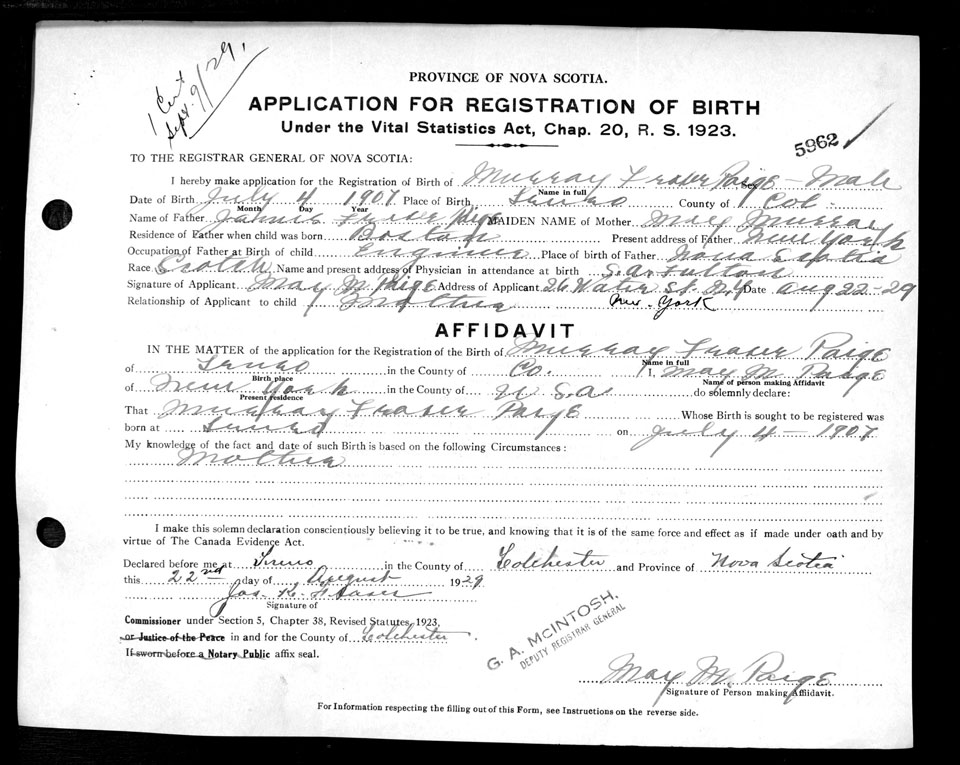 1 Cert
Sept. 9/29.
PROVINCE OF NOVA SCOTIA.
APPLICATION FOR REGISTRATION OF BIRTH
Under the Vital Statistics Act, Chap. 20, R. S. 1923.
5962
TO THE REGISTRAR GENERAL OF NOVA SCOTIA:
I hereby make application for the Registration of Birth of Murray Fraser Paige Sex - Male
Name in full
Date of Birth July 4 1907 Place of Birth, Truro County of Col.
Month Day Year
Name of Father James Fraser Paige MAIDEN NAME of Mother May Murray
Residence of Father when child was born Boston Present address of Father New York
Occupation of Father at Birth of child Engineer Place of birth of Father Nova Scotia
Race Scotch Name and present address of Physician in attendance at birth S. A. Fulton
Signature of Applicant May M Paige Address of Applicant 26 Water St. N.Y Date Aug 22-29
Relationship of Applicant to child Mother New-York
AFFIDAVIT
IN THE MATTER of the application for the Registration of the Birth of Murray Fraser Paige
Name in full
of Truro in the County of Co. I, May M Paige
Birth place Name of person making Affidavit
of New York in the County of U S A do solemnly declare:
Present residence
That Murray Fraser Paige Whose Birth is sought to be registered was
born at Truro on July 4 - 1907
My knowledge of the fact and date of such Birth is based on the following Circumstances:
Mother
I make this solemn declaration conscientiously believing it to be true, and knowing that it is of the same force and effect as if made under oath and by
virtue of The Canada Evidence Act.
Declared before me at Truro in the County of Colchester and Province of Nova Scotia
this 22nd day of August 1929
Jas. K. Fraser
Signature of
Commissioner under Section 5, Chapter 38, Revised Statutes, 1923,
or Justice of the Peace in and for the County of Colchester.
If sworn before a Notary Public affix seal.
G. A. McINTOSH,
DEPUTY REGISTRAR GENERAL
May M. Paige
Signature of Person making Affidavit.
For Information respecting the filling out of this Form, see Instructions on the reverse side.